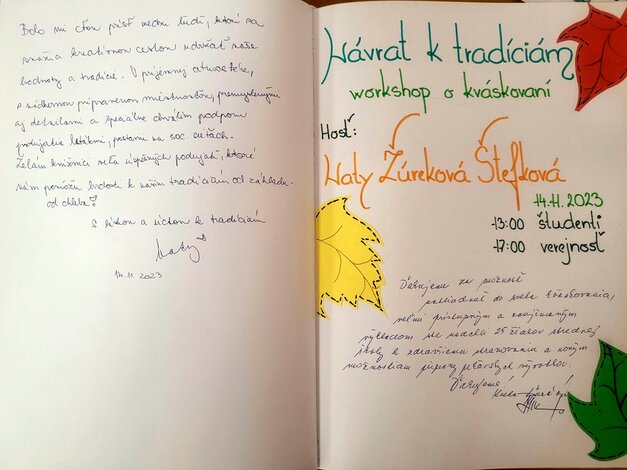 Bolo mi cťou prísť medzi ľudí, ktorí sa
snažia kreatívnou cestou udržať naše
hodnoty a tradície. V príjemnej atmosfére,
s nádhernou pripravenou miestnosťou, premyslenými
aj detailami a špeciálne chválim podporu
podujatia letákmi, postami na soc. sieťach.
Želám knižnici veľa úspešných podujatí, ktoré
nám pomôžu budovať k našim tradíciám od základu -
od chleba
S láskou a úctou k tradíciám
Naty
14.11.2023
Návrat k tradíciám
workshop o kváskovaní
Hosť:
Naty Žúreková Štefková
14.11.2023
13:00 študenti
17:00 verejnosť
Ďakujeme za možnosť
nahliadnuť do sveta kváskovania,
veľmi prístupným a
výkladom ste nadchli 25 žiakov strednej
školy k zdravšiemu stravovaniu a novým
možnostiam prípravy pekárskych výrobkov.
Ďakujeme!